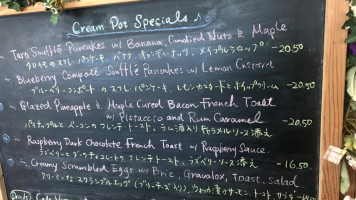 Cream Pot Specials
Taro Soufflé Pancakes w/ Banana, Candied Nuts & Maple
タロイモのスフレパンケーキ バナナ キャンディーナッツ、メイプルシロップ -20.50
Blueberry Compote Soufflé Pancakes w/ Lemon Custard
ブルーベリーコンポートのスフレパンケーキ レモンカスタードとホイップクリーム -20.50
Glazed Pineapple & Maple Cured Bacon French Toast
w/ Pistaccio and Rum Caramel
パイナップルとベーコンのフレンチトースト、ラム酒入りキャラメルソース添え -20.50
Raspberry Dark Chocolate French Toast w/ Raspberry Sauce.
ラズベリーとダークチョコレートのフレンチトースト、ラズベリーソース添え -16.50
Creamy Scrambled Eggs w/ Brie, Gravlox, Toast, Salad
クリーミーなスクランブルエッグ (ブリーチーズ入り)、サーモン、トースト サラダ